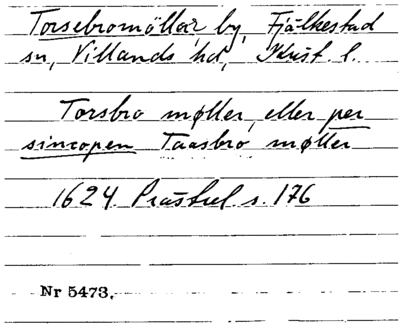 Torsebromöllar, by, Fjälkestad
sn, Villands hd, Krist. l.
Torsbro møller, eller per
sincopen Taasbro møller
1624. Prästrel s. 176
Nr 5473.